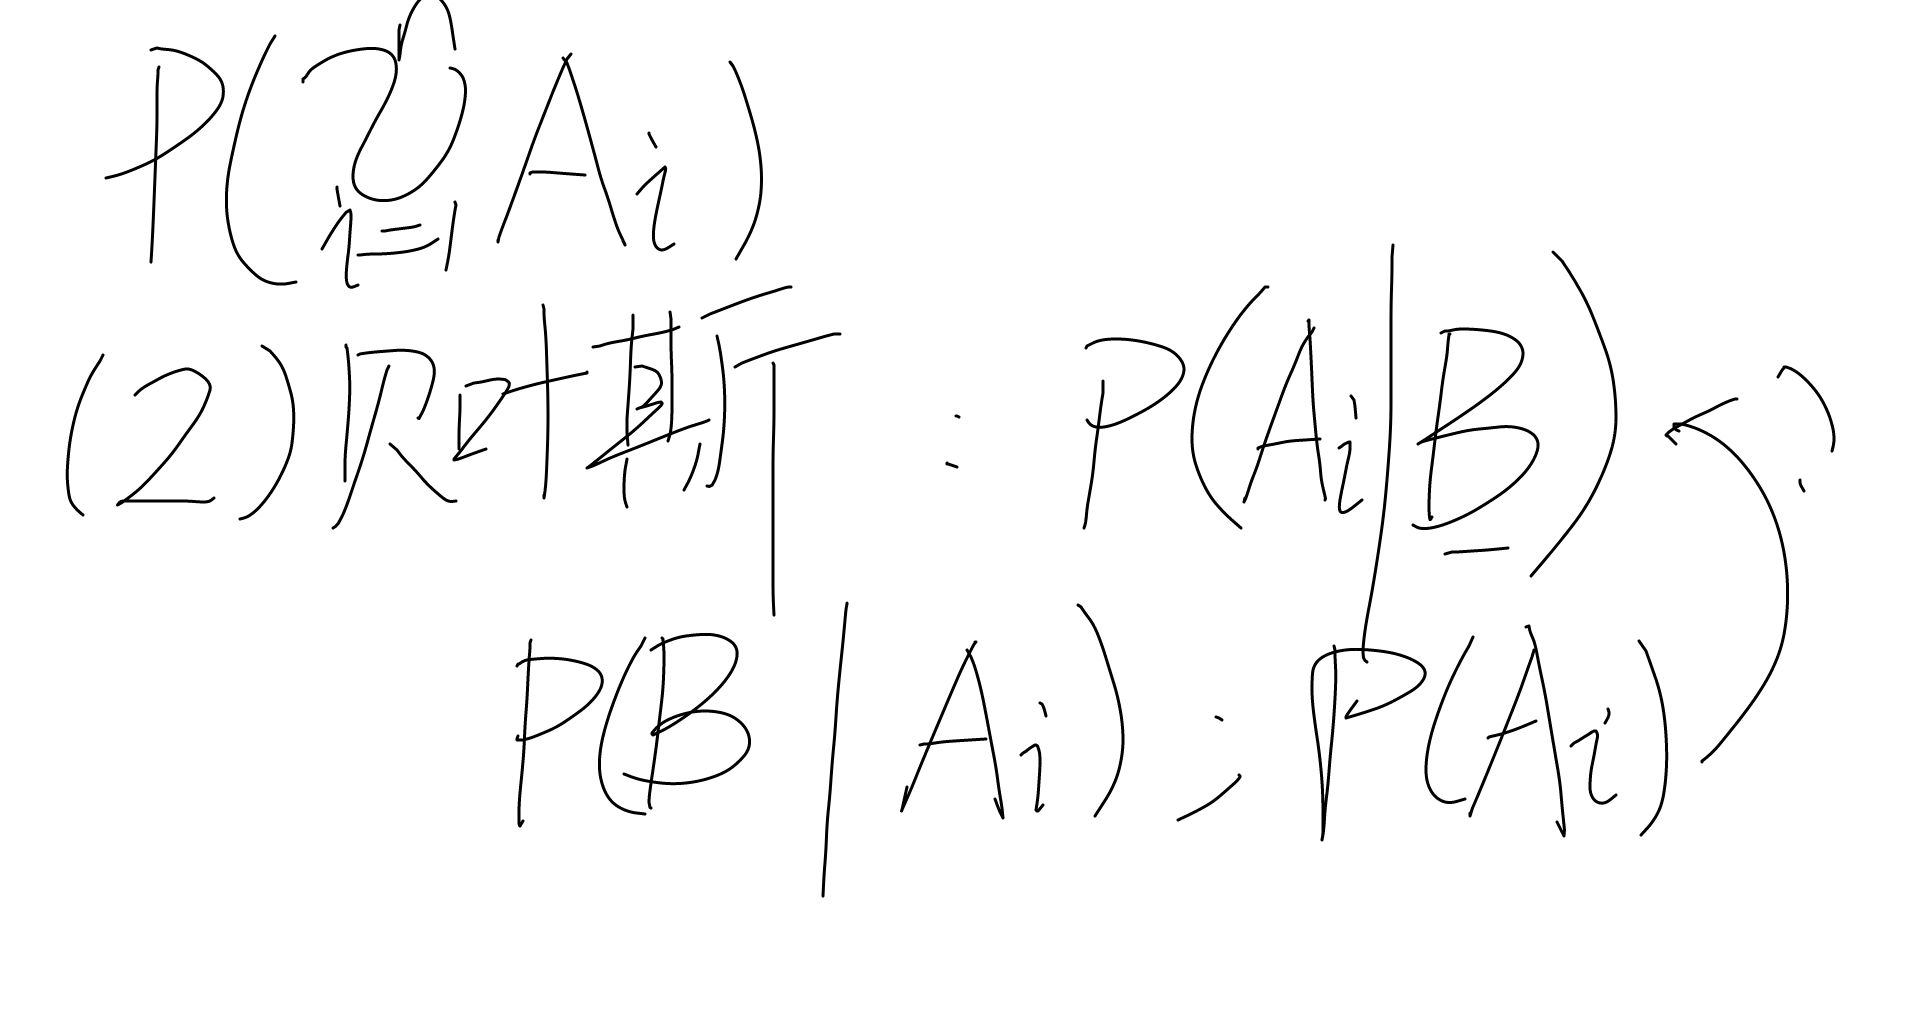 P(⋃ⁿᵢ₌₁ Aᵢ)
(2)贝叶斯 : P(Aᵢ|B) ?
P(B|Aᵢ); P(Aᵢ)